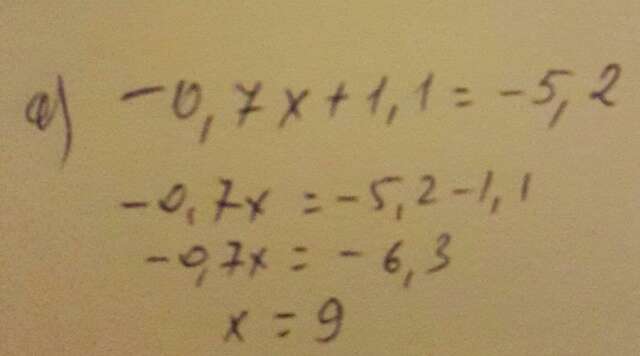 а) -0,7x+1,1=-5,2
-0,7x=-5,2-1,1
-0,7x=-6,3
x=9